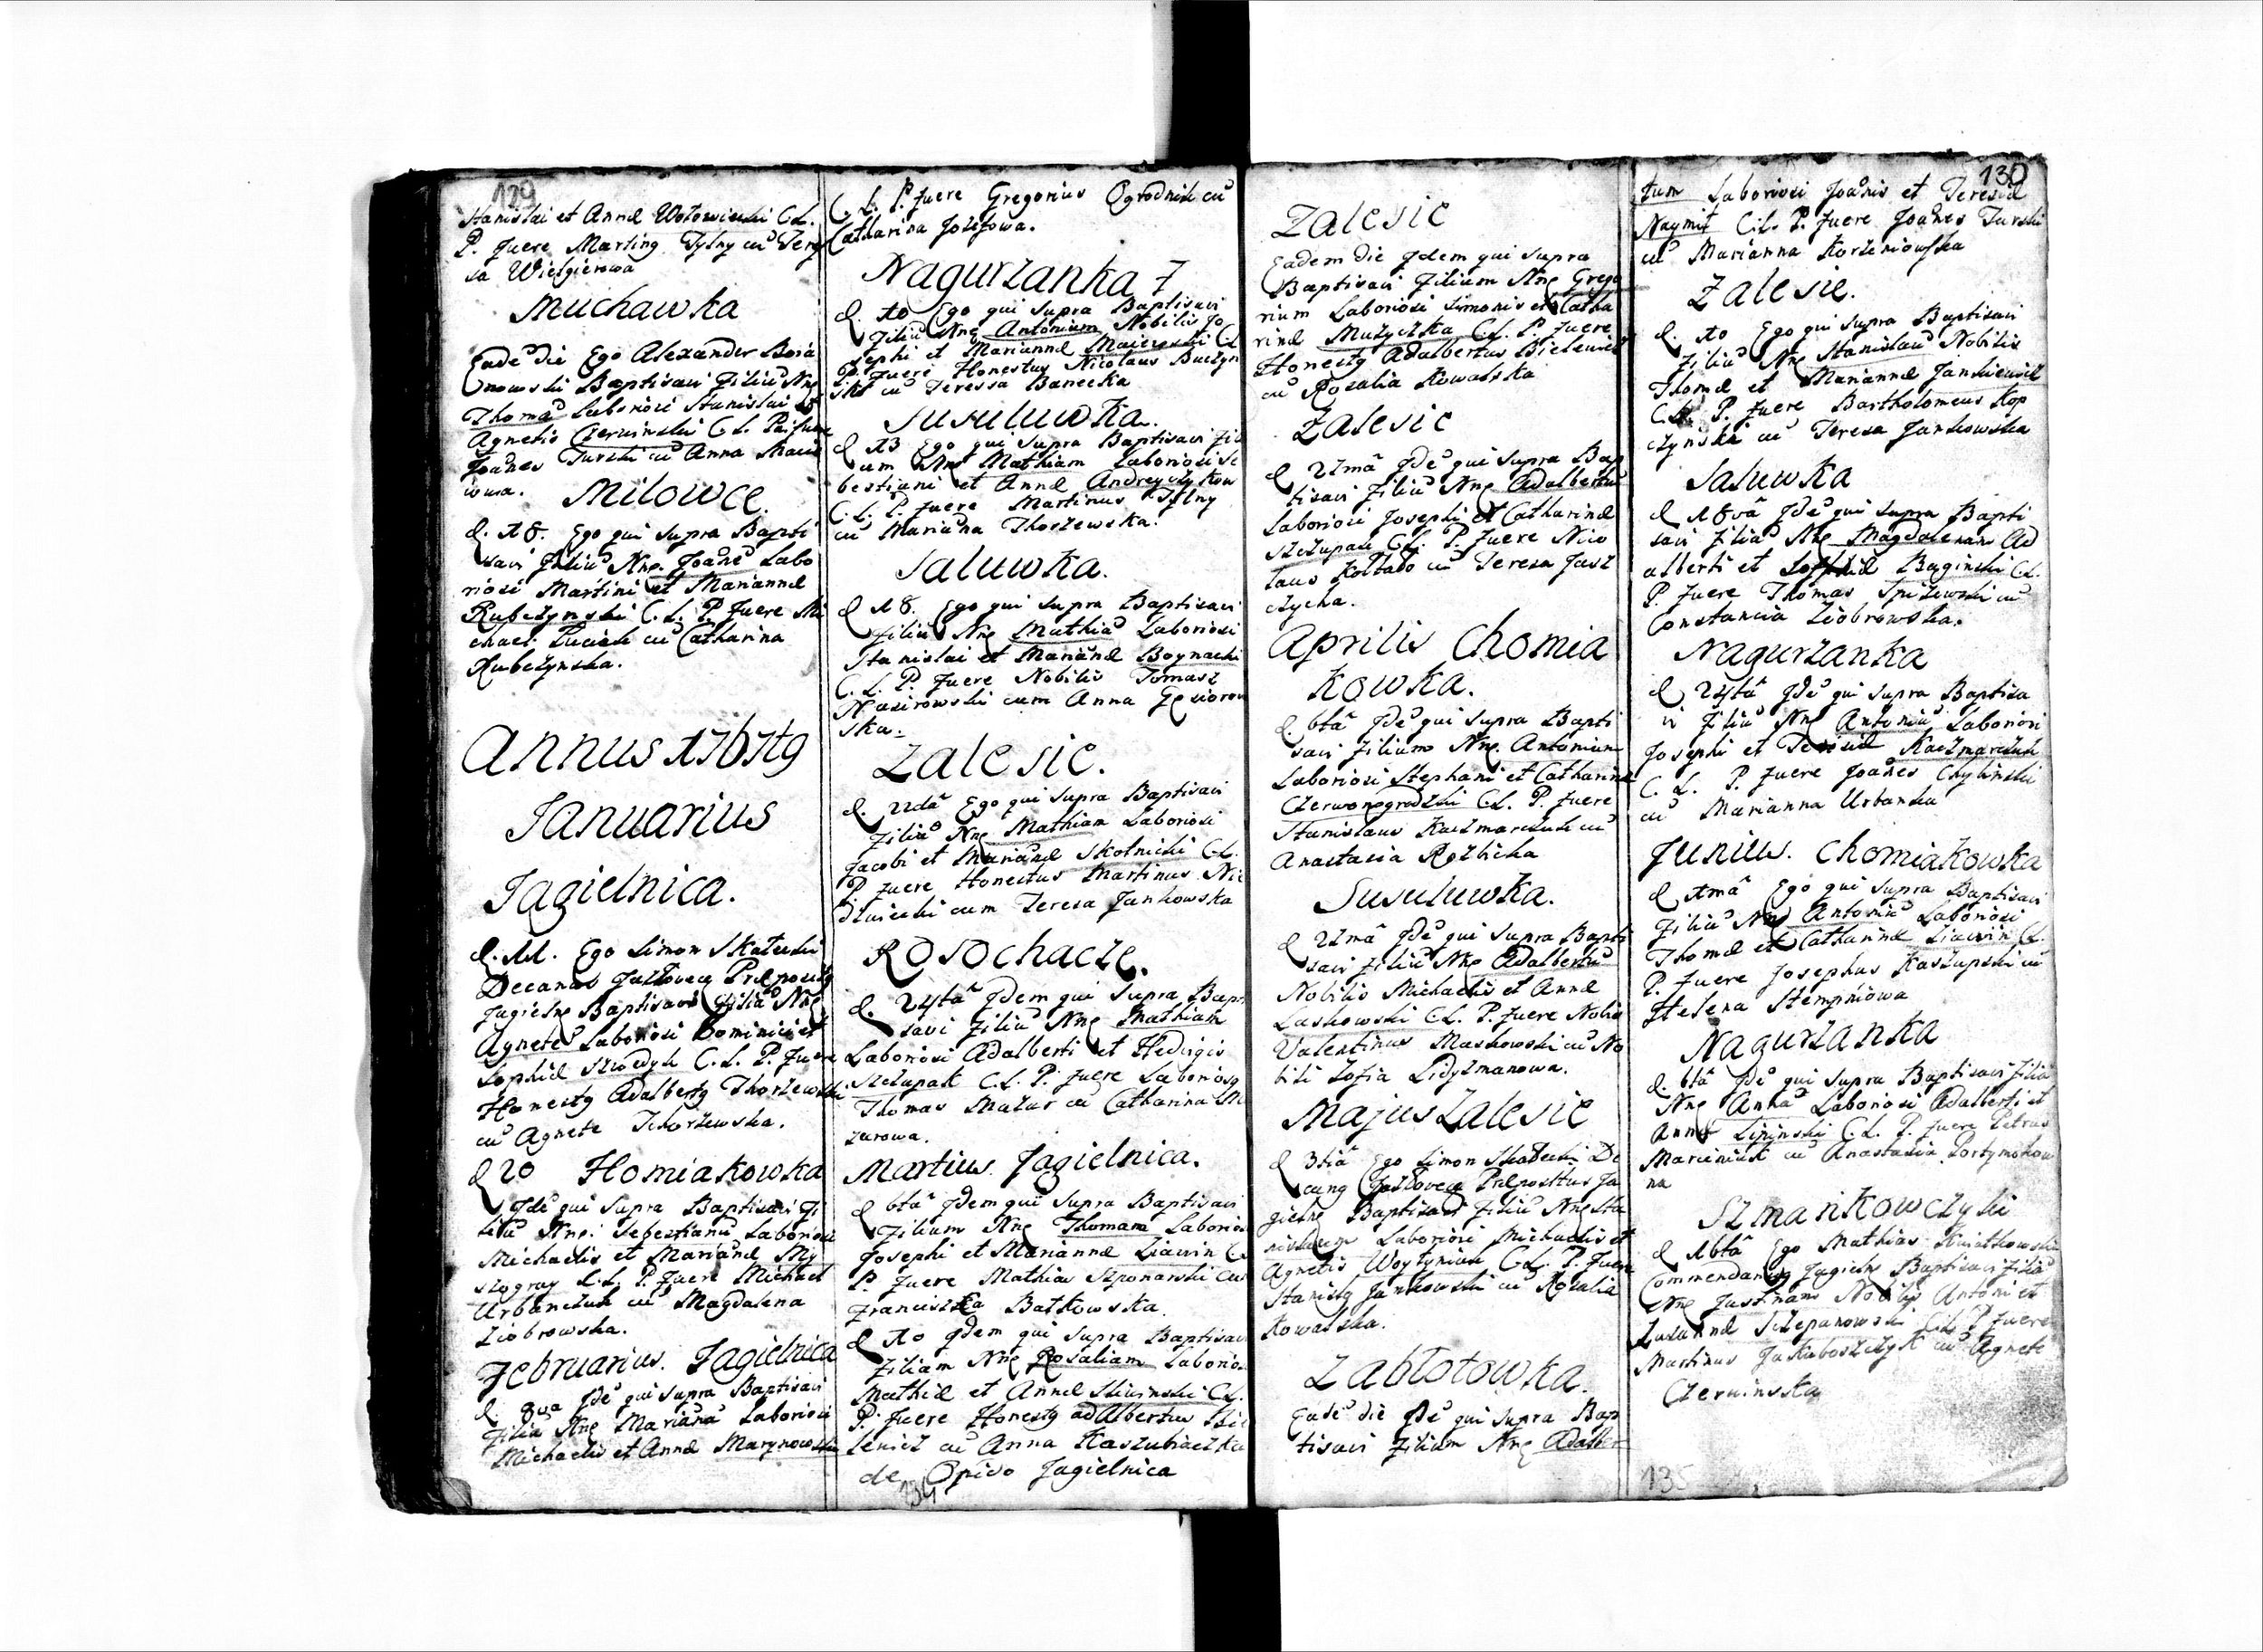 129
Stanislai et Annæ Wołowiecki C.L.
P. fuere Marting Tylny cu Tere
sa Wielgierowa
Muchawka
Eadē die Ego Alexander Boia
nowski Baptisavi Filiū Nne
Thomā Laboriosi Stanislai et
Agnetis Czerwinski C.L. Pa: fuere
Joanes Turski cū Anna Macie
iowa.
Milowce.
d. 18. Ego qui Supra Bapti
savi Filiū Nne. Joanē Labo
riosi Martini et Mariannæ
Rubczynski C.L. P. fuere Mi
chael cū Catharina
Rubczynska.
Annus 1767tg
Januarius
Jagielnica.
d. 11. Ego Simon Skatecki
Decanus Jazlovecg Præpositg
Jagielng Baptisavi Filiā Nne
Agnetē Laboriosi Dominici et
Sophiæ C.L. P. fuere
Honestg Adalbertg Thorzewski
cū Agnete Tchorzewska.
d 20 Homiakowka
Jdē qui Supra Baptisavi Fi
liū Nne: Sebestianū Laboriosi
Michaelis et Mariānæ My
szogray C.L. P. fuere Michael
Urbanczuk cū Magdalena
Ziobrowska.
Februarius. Jagielnica
d. 8va Jdē qui Supra Baptisavi
Filiā Nne Mariānā Laboriosi
Michaelis et Annæ Marynowski
C. L. P. fuere Gregorius Ogrodnik cū
Catharina Jozefowa.
Nagurzanka 7
d. 10 Ego qui Supra Baptisavi
Filiū Nne Antonium Nobilis Jo
sephi et Mariannæ Maierski CL
P. fuere Honestus Nicolaus Buczyn
ski cū Teressa Banecka
Susuluwka.
d 13 Ego qui Supra Baptisavi Fili
um Nne Mathiam Laboriosi Se
bestiani et Annæ Andreyczykow
C. L. P. fuere Martinus Tylny
cū Mariāna Thorzewska.
Saluwka.
d 18. Ego qui Supra Baptisavi
Filiū Nne Mathiā Laboriosi
Stanislai et Mariānæ Boynacki
C. L. P. fuere Nobilis Tomasz
Nasirowski cum Anna Gęsiorow
ska.
Zalesie.
d. 22dâ Ego qui Supra Baptisavi
Filiū Nne Mathiam Laboriosi
Jacobi et Mariānæ Skotnicki C.L.
P fuere Honestus Martinus Nie
dzwiecki cum Teresa Jankowska
Rosochacze.
d. 24tâ Jdem qui Supra Bapti
savi Filiū Nne Mathiam
Laboriosi Adalberti et Hedvigis
Szczupak C.L. P. fuere Laboriosg
Thomas Mazur cū Catharina Ma
zurowa.
Martius Jagielnica.
d 6tâ Jdem qui Supra Baptisavi
Filium Nne Thomam Laboriosi
Josephi et Mariannæ Ziawin CL
P. fuere Mathias Szponarski cum
Franciszka Batkowska.
d 10 Jdem qui Supra Baptisavi
Filiam Nne Rosaliam Laborio.
Mathiæ et Annæ Sliwinski C.L.
P. fuere Honestg adAlbertus Bie
lenicz cū Anna Kaszubiaczka
de Opido Jagielnica
134
Zalesie
Eadem die Jdem qui Supra
Baptisavi Filium Nne Grego
rium Laboriosi Simonis et Catha
rinæ Muzyczka C.L. P. fuere
Honestg Adalbertus Bielenicz
cū Rozalia Kowalska
Zalesie
d 21mâ Jdē qui Supra Bap
tisavi Filiū Nne Adalbertū
Laboriosi Josephi et Catharinæ
Szczupak C.L. P. fuere Nico
laus Kołtado cū Teresa Jasz
czycha.
Aprilis Chomia
kowka.
d. 6tâ Jdē qui Supra Bapti
savi Filium Nne. Antonium
Laboriosi Stephani et Catharinæ
Czerwonogradzki C.L. P. fuere
Stanislaus Kaczmarczuk cū
Anastasia Rozlicka
Susuluwka.
d 21mâ Jdē qui Supra Bapti
savi Filiū Nne Adalbertū
Nobilis Michaelis et Annæ
Laskowski C.L. P. fuere Nobi
Valentinus Maskowski cū No
bili Zofia Lidyzmanowa.
Majus Zalesie
d 3tiâ Ego Simon Skatecki De
cang Jazlovecg Præposttus Ja
gielng Baptisavi Filiū Nne Sta
nislaum Laboriosi Michaelis et
Agnetis Woytyniak C.L. P. fuere
Stanislg Jankowski cū Rozalia
Kowalska.
Zabłotowka.
Eadē die Jdē qui Supra Bap
tisavi Filium Nne Adalber
130
tum Laboriosi Joānis et Teresiæ
Naymit C.L. P. fuere Joānes Turski
cū Marianna Korzeniowska
Zalesie.
d. 10 Ego qui Supra Baptisavi
Filiū Nne Stanislaū Nobilis
Thomæ et Mariannæ Jankiewicz
C.L. P. fuere Bartholomeus Kop
czynski cū Teresa Jankowska
Saluwka
d 18vâ Jdē qui Supra Bapti
savi Filiā Nne Magdalenam Ad
alberti et Sophiæ Baginski C.L.
P. fuere Thomas Spizewski cū
Constancia Ziobrowska.
Nagurzanka
d 24tâ Jdē qui Supra Baptisa
vi Filiū Nne Antoniū Laboriosi
Josephi et Teresiæ Kaczmarczuk
C. L. P. fuere Joānes Chylinski
cū Marianna Urbanka
Junius. Chomiakowka
d 1mâ Ego qui Supra Baptisavi
Filiū Nne Antoniū Laboriosi
Thomæ et Catharinæ Ziawin C.L.
P. fuere Josephus Kaszupski cū
Helena Stempniowa
Nagurzanka
d. 6tâ Jdē qui Supra Baptisavi Filiā
Nne Annā Laboriosi Adalberti et
Annæ Lipinski C.L. P. fuere Petrus
Marciniuk cū Anastasia Portymokow
na
Szmankowczyki
d 16tâ Ego Mathias Kwiatkowski
Commendarig Jagieln Baptisavi Filiā
Nne Justinam Nobilis Antoni et
Zuzannæ Sczepanowski C.L. P fuere
Martinus Jakuboszczyk cū Agnete
Czerwinska
135